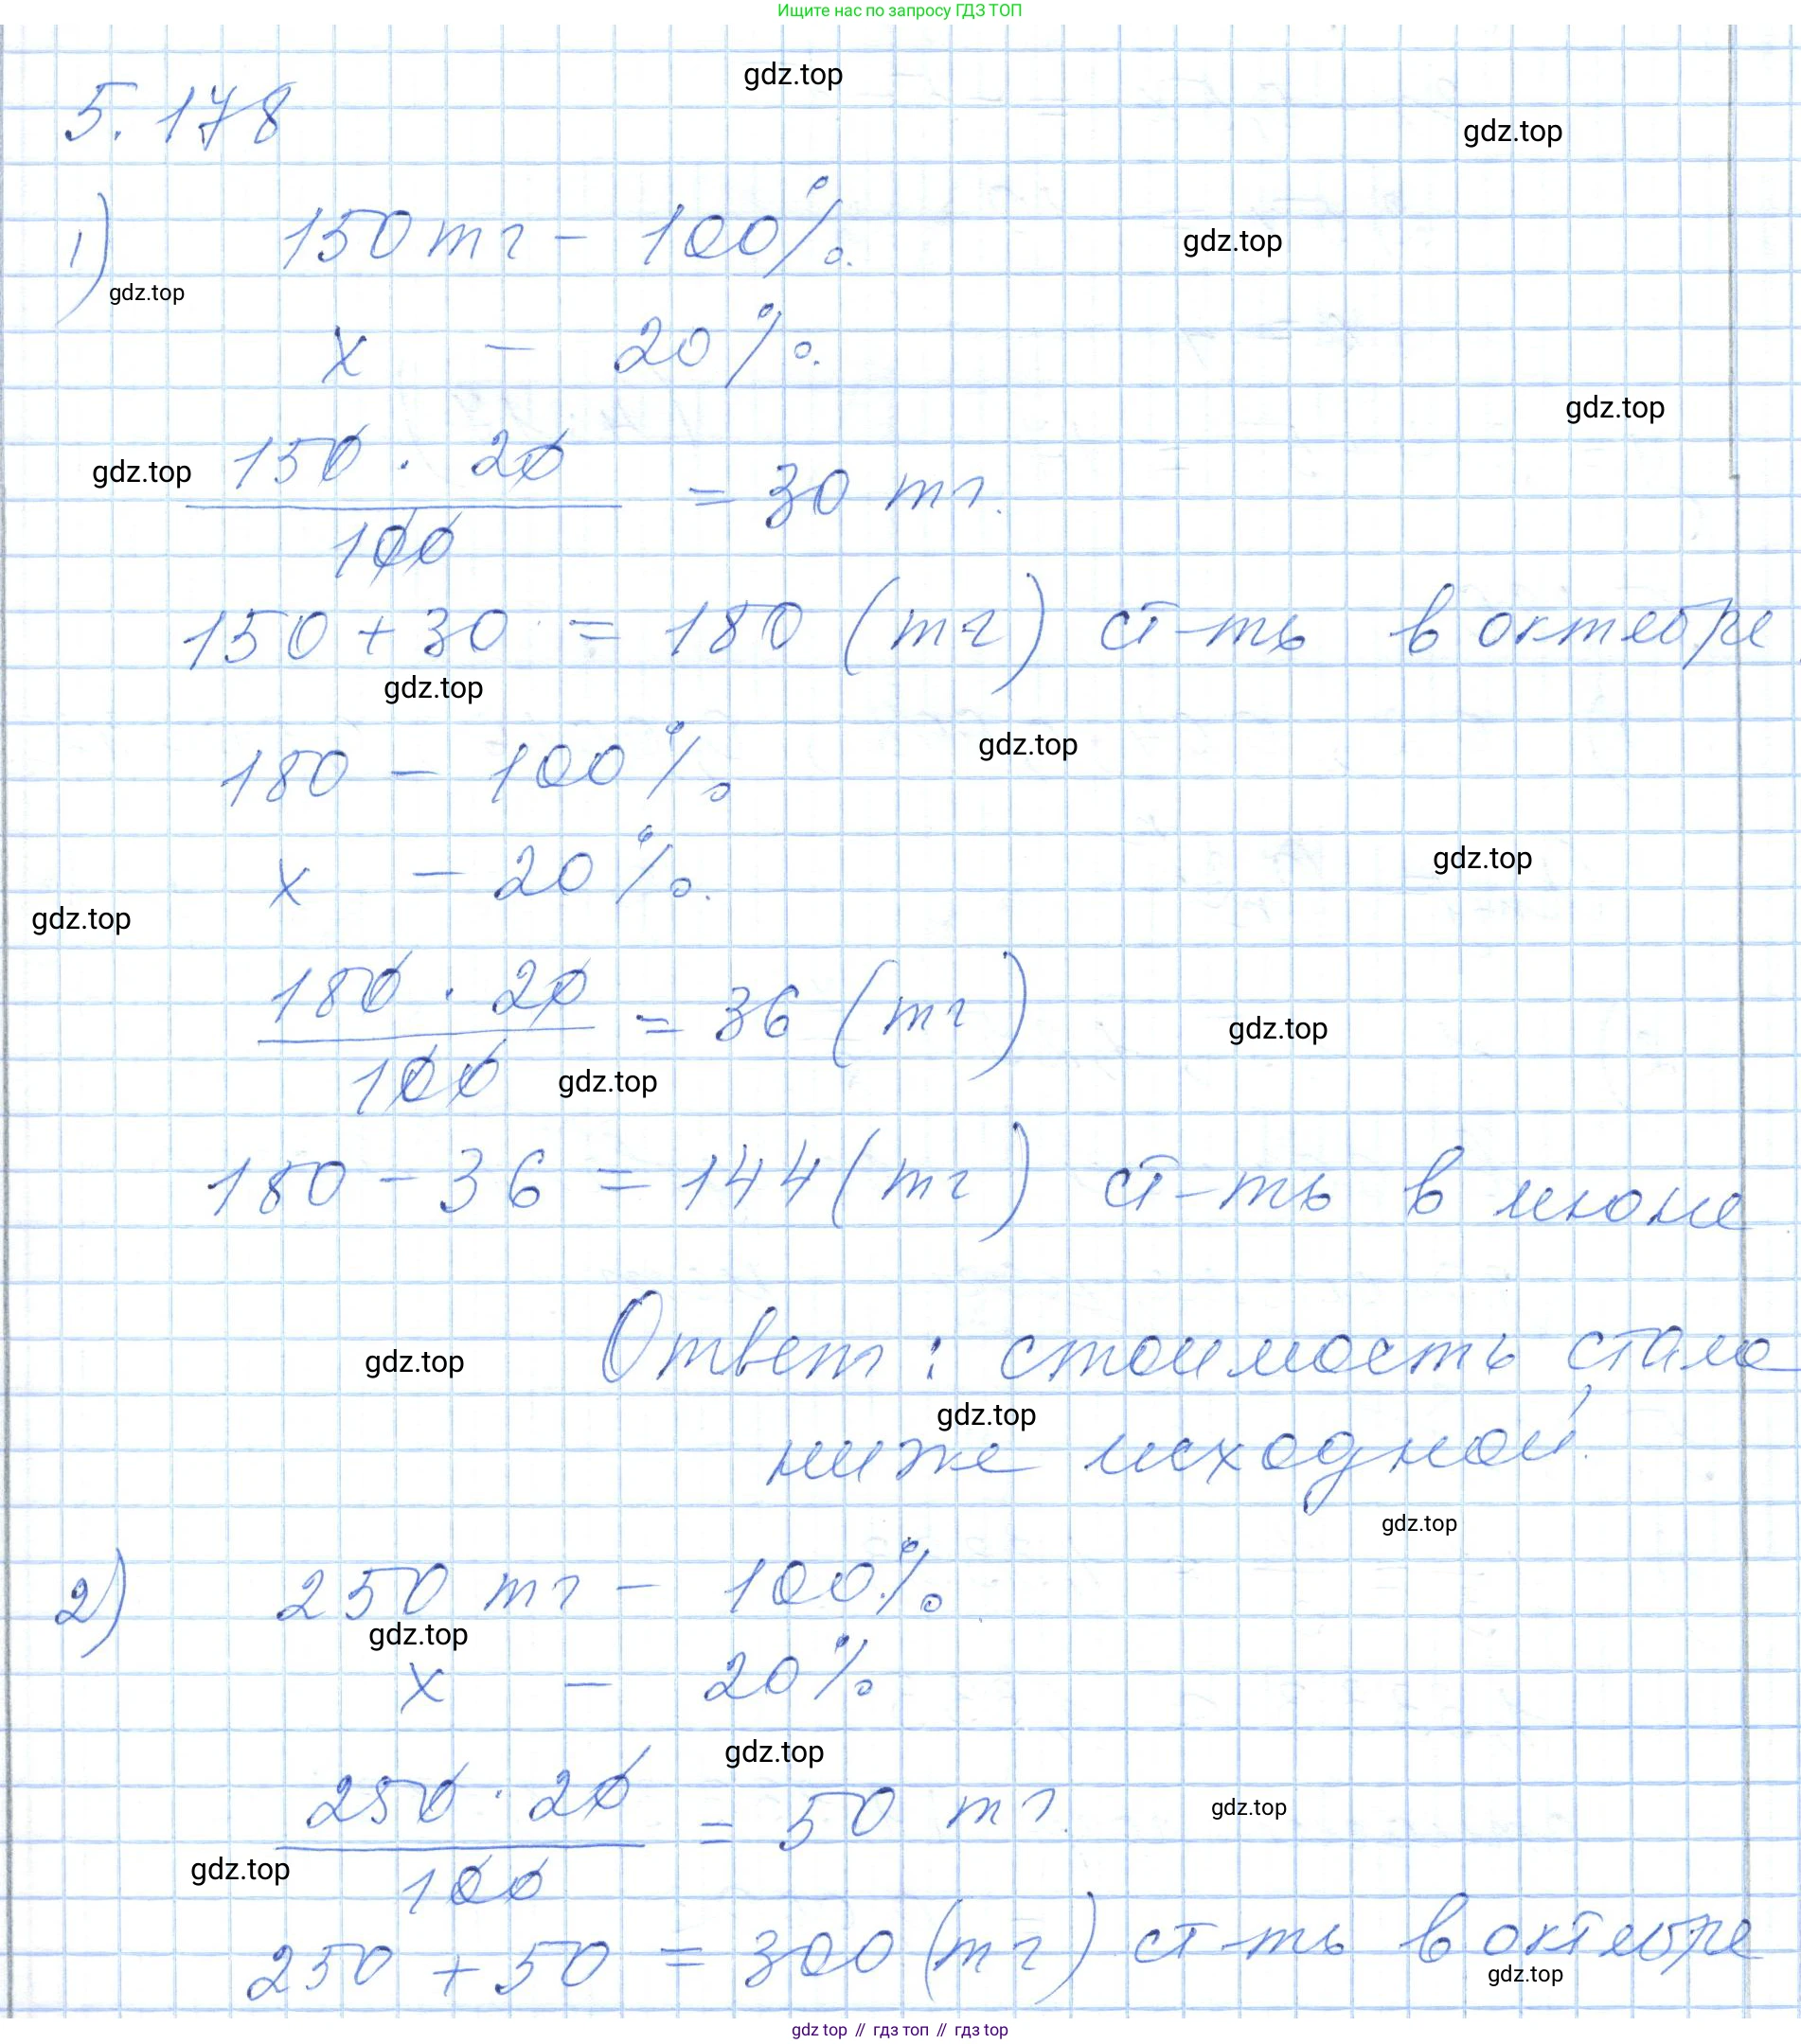 Ищите нас по запросу ГДЗ ТОП
gdz.top
5.178
gdz.top
1) 150 тг - 100%.
gdz.top
gdz.top
x - 20%.
gdz.top
gdz.top
150 · 20 / 100 = 30 тг.
150 + 30 = 180 (тг) ст-ть в октебре
gdz.top
180 - 100%
gdz.top
x - 20%.
gdz.top
gdz.top
180 · 20 / 100 = 36 (тг)
gdz.top
gdz.top
180 - 36 = 144 (тг) ст-ть в июне
Ответ: стоимость стала
gdz.top
gdz.top
ниже исходной.
gdz.top
2) 250 тг - 100%
gdz.top
x - 20%
gdz.top
250 · 20 / 100 = 50 тг.
gdz.top
gdz.top
250 + 50 = 300 (тг) ст-ть в октебре
gdz.top
gdz top // гдз топ // gdz top